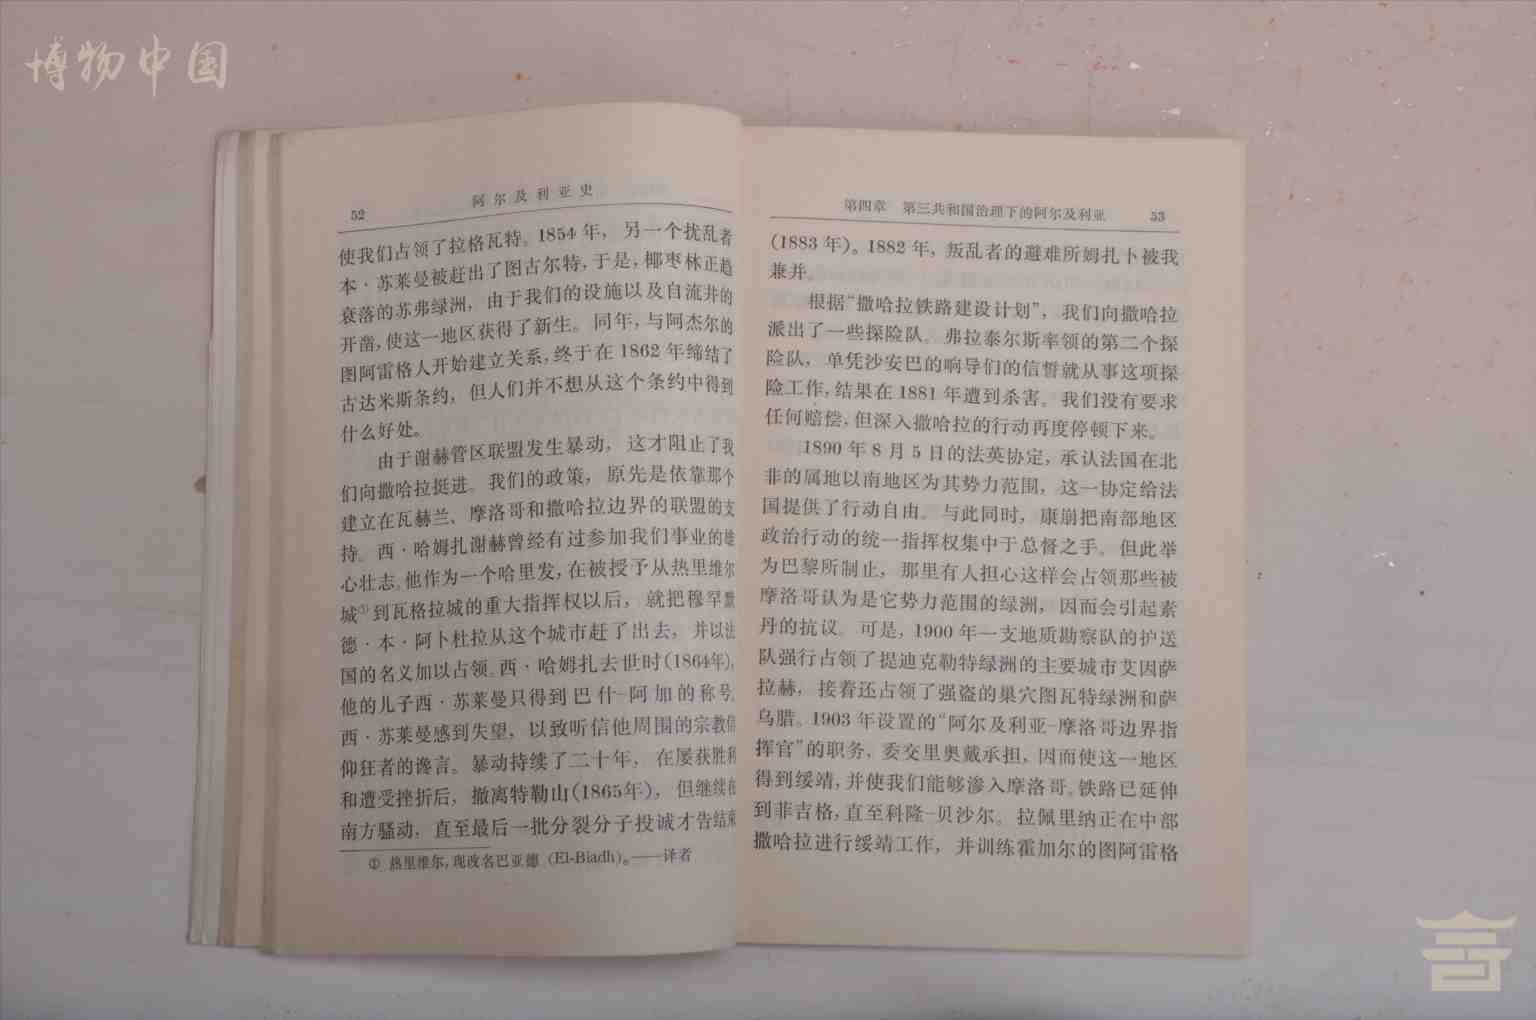 博物中国
阿尔及利亚史
52
使我们占领了拉格瓦特。1854年，另一个扰乱者
本·苏莱曼被赶出了图古尔特，于是，椰枣林正趋
衰落的苏弗绿洲，由于我们的设施以及自流井的
开凿，使这一地区获得了新生。同年，与阿杰尔的
图阿雷格人开始建立关系，终于在1862年缔结了
古达米斯条约，但人们并不想从这个条约中得到
什么好处。
由于谢赫管区联盟发生暴动，这才阻止了我
们向撒哈拉挺进。我们的政策，原先是依靠那个
建立在瓦赫兰、摩洛哥和撒哈拉边界的联盟的支
持。西·哈姆扎谢赫曾经有过参加我们事业的雄
心壮志。他作为一个哈里发，在被授予从热里维尔
城①到瓦格拉城的重大指挥权以后，就把穆罕默
德·本·阿卜杜拉从这个城市赶了出去，并以法
国的名义加以占领。西·哈姆扎去世时(1864年)，
他的儿子西·苏莱曼只得到巴什-阿加的称号。
西·苏莱曼感到失望，以致听信他周围的宗教信
仰狂者的谗言。暴动持续了二十年，在屡获胜利
和遭受挫折后，撤离特勒山(1865年)，但继续在
南方骚动，直至最后一批分裂分子投诚才告结束
① 热里维尔，现改名巴亚德 (El-Biadh)。——译者
第四章 第三共和国治理下的阿尔及利亚 53
(1883年)。1882年，叛乱者的避难所姆扎卜被我
兼并。
根据“撒哈拉铁路建设计划”，我们向撒哈拉
派出了一些探险队。弗拉泰尔斯率领的第二个探
险队，单凭沙安巴的响导们的信誓就从事这项探
险工作，结果在1881年遭到杀害。我们没有要求
任何赔偿，但深入撒哈拉的行动再度停顿下来。
1890年8月5日的法英协定，承认法国在北
非的属地以南地区为其势力范围，这一协定给法
国提供了行动自由。与此同时，康崩把南部地区
政治行动的统一指挥权集中于总督之手。但此举
为巴黎所制止，那里有人担心这样会占领那些被
摩洛哥认为是它势力范围的绿洲，因而会引起素
丹的抗议。可是，1900年一支地质勘察队的护送
队强行占领了提迪克勒特绿洲的主要城市艾因萨
拉赫，接着还占领了强盗的巢穴图瓦特绿洲和萨
乌腊。1903年设置的“阿尔及利亚-摩洛哥边界指
挥官”的职务，委交里奥戴承担，因而使这一地区
得到绥靖，并使我们能够渗入摩洛哥。铁路已延伸
到菲吉格，直至科隆-贝沙尔。拉佩里纳正在中部
撒哈拉进行绥靖工作，并训练霍加尔的图阿雷格